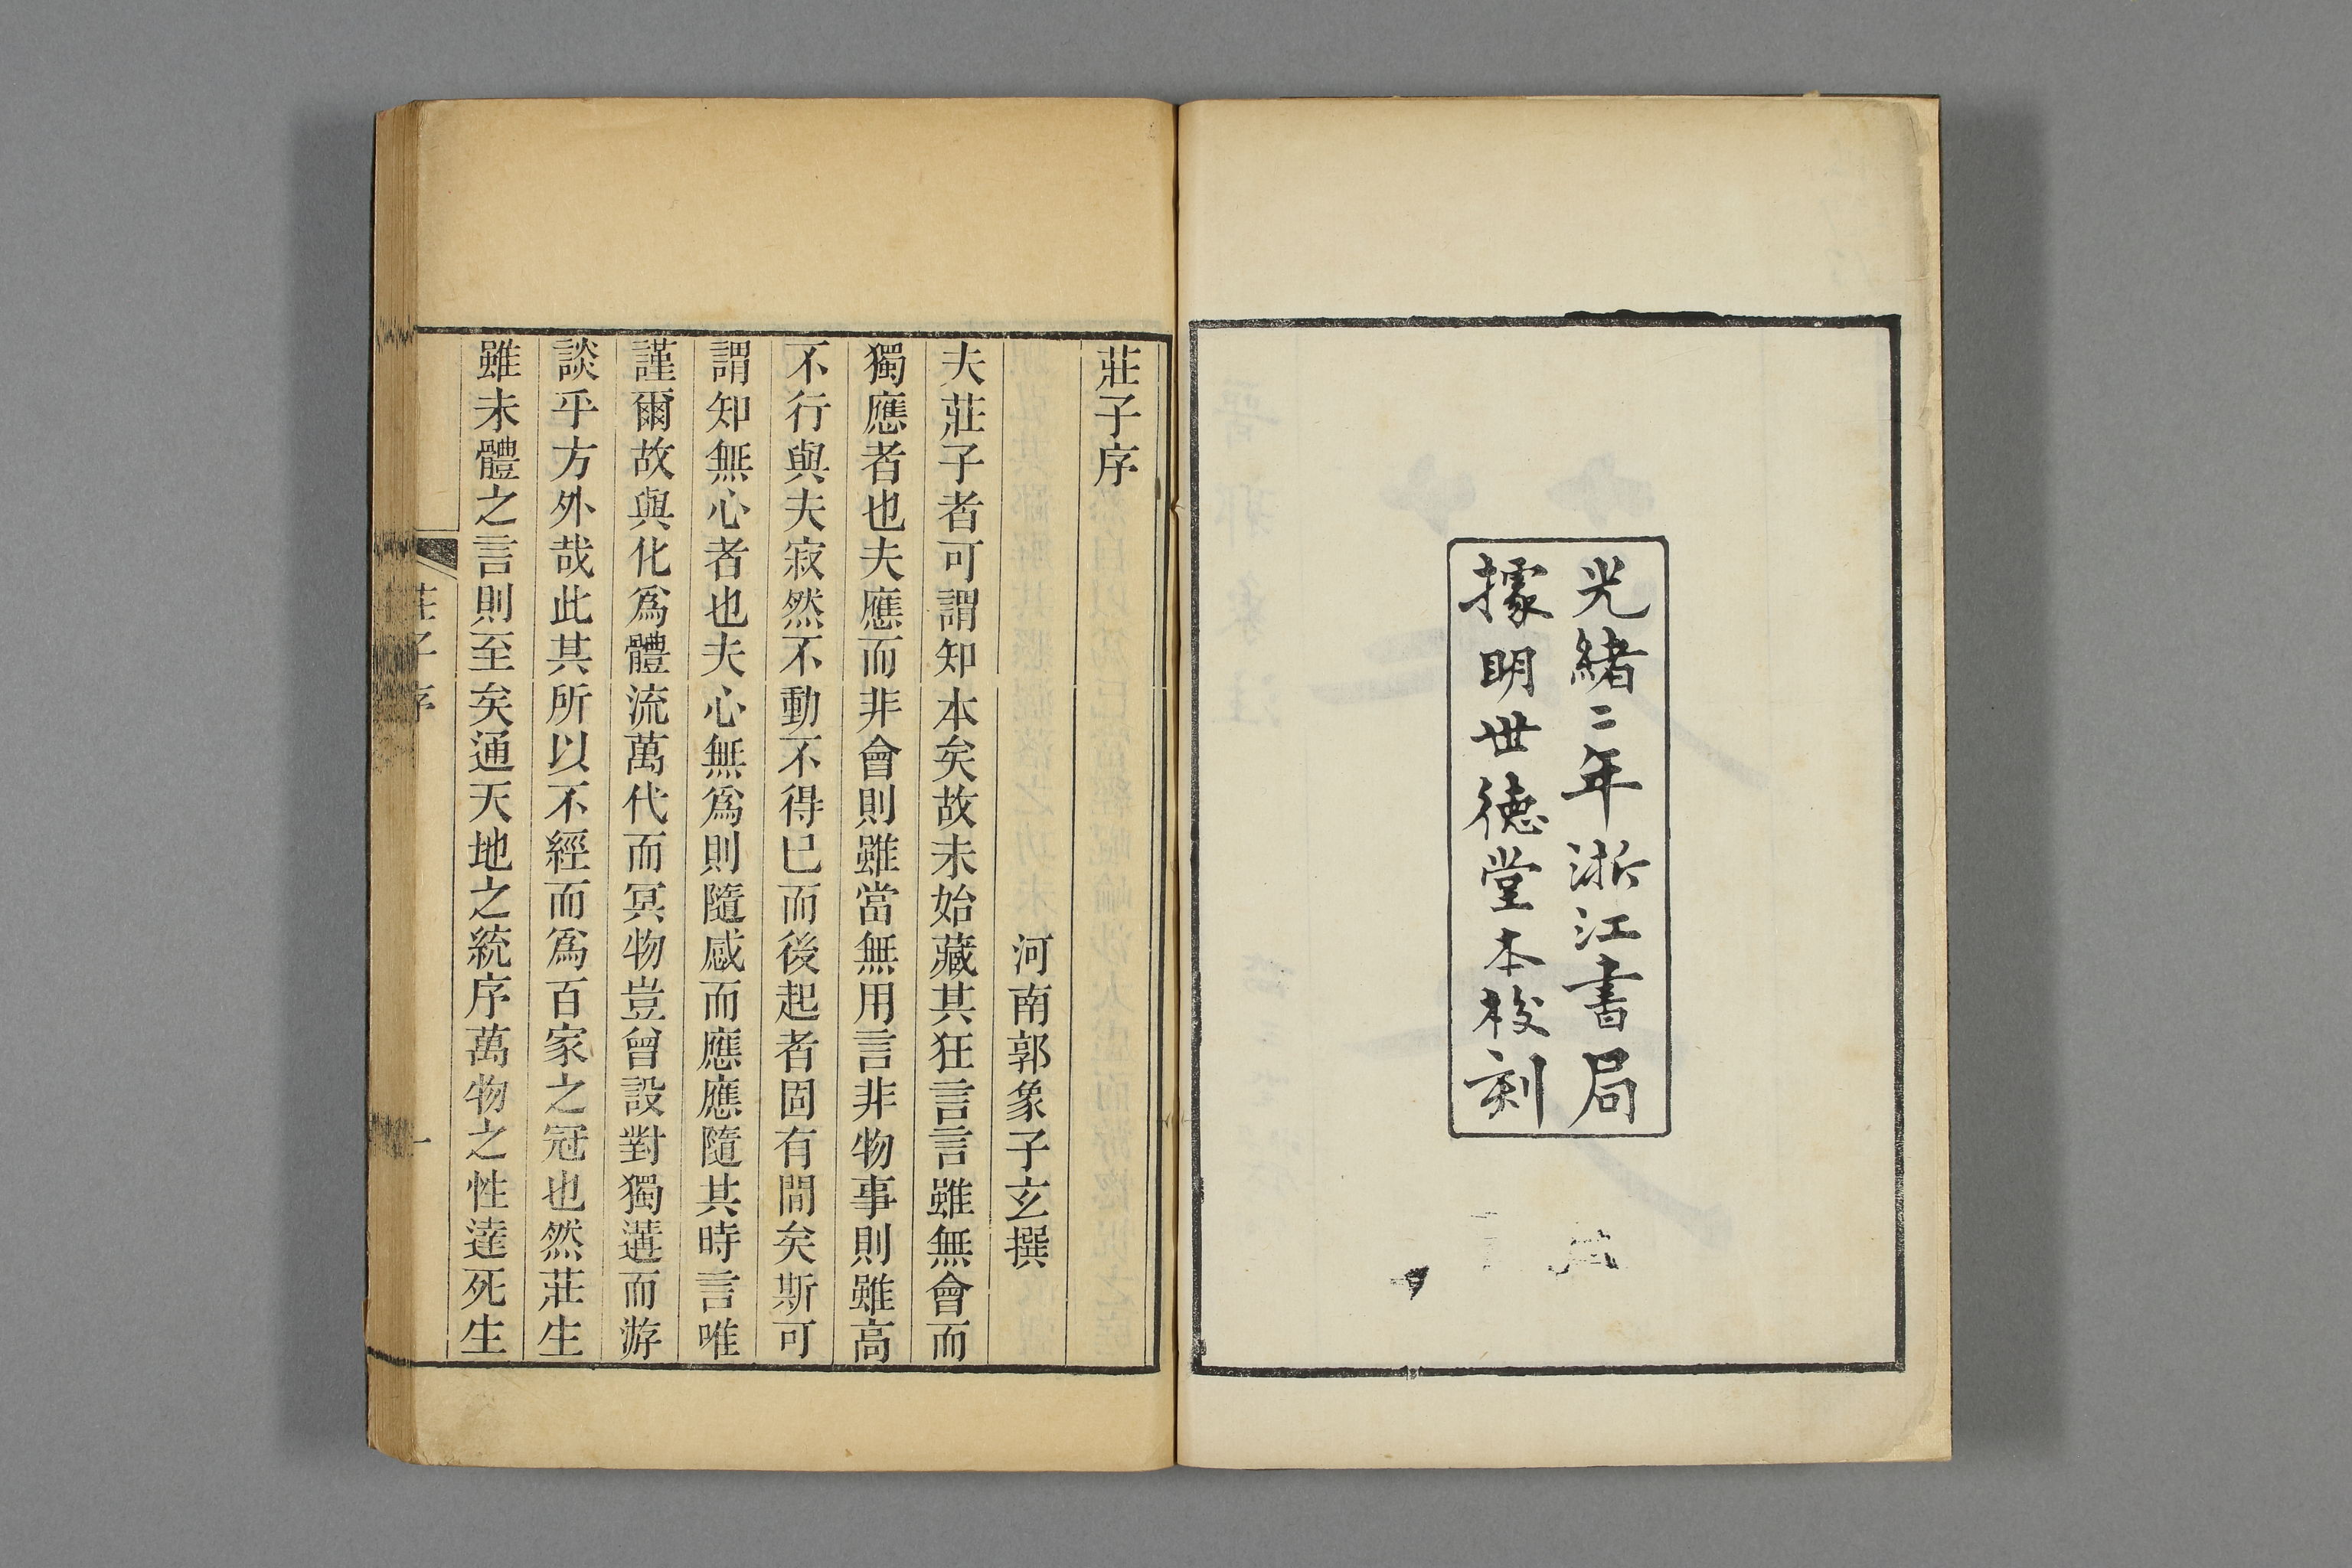 光緒二年浙江書局
據明世德堂本校刻
莊子序
河南郭象子玄撰
夫莊子者可謂知本矣故未始藏其狂言言雖無會而
獨應者也夫應而非會則雖當無用言非物事則雖高
不行與夫寂然不動不得已而後起者固有間矣斯可
謂知無心者也夫心無為則隨感而應應隨其時言唯
謹爾故與化為體流萬代而冥物豈曾設對獨遘而游
談乎方外哉此其所以不經而為百家之冠也然莊生
雖未體之言則至矣通天地之統序萬物之性達死生
莊子序
一